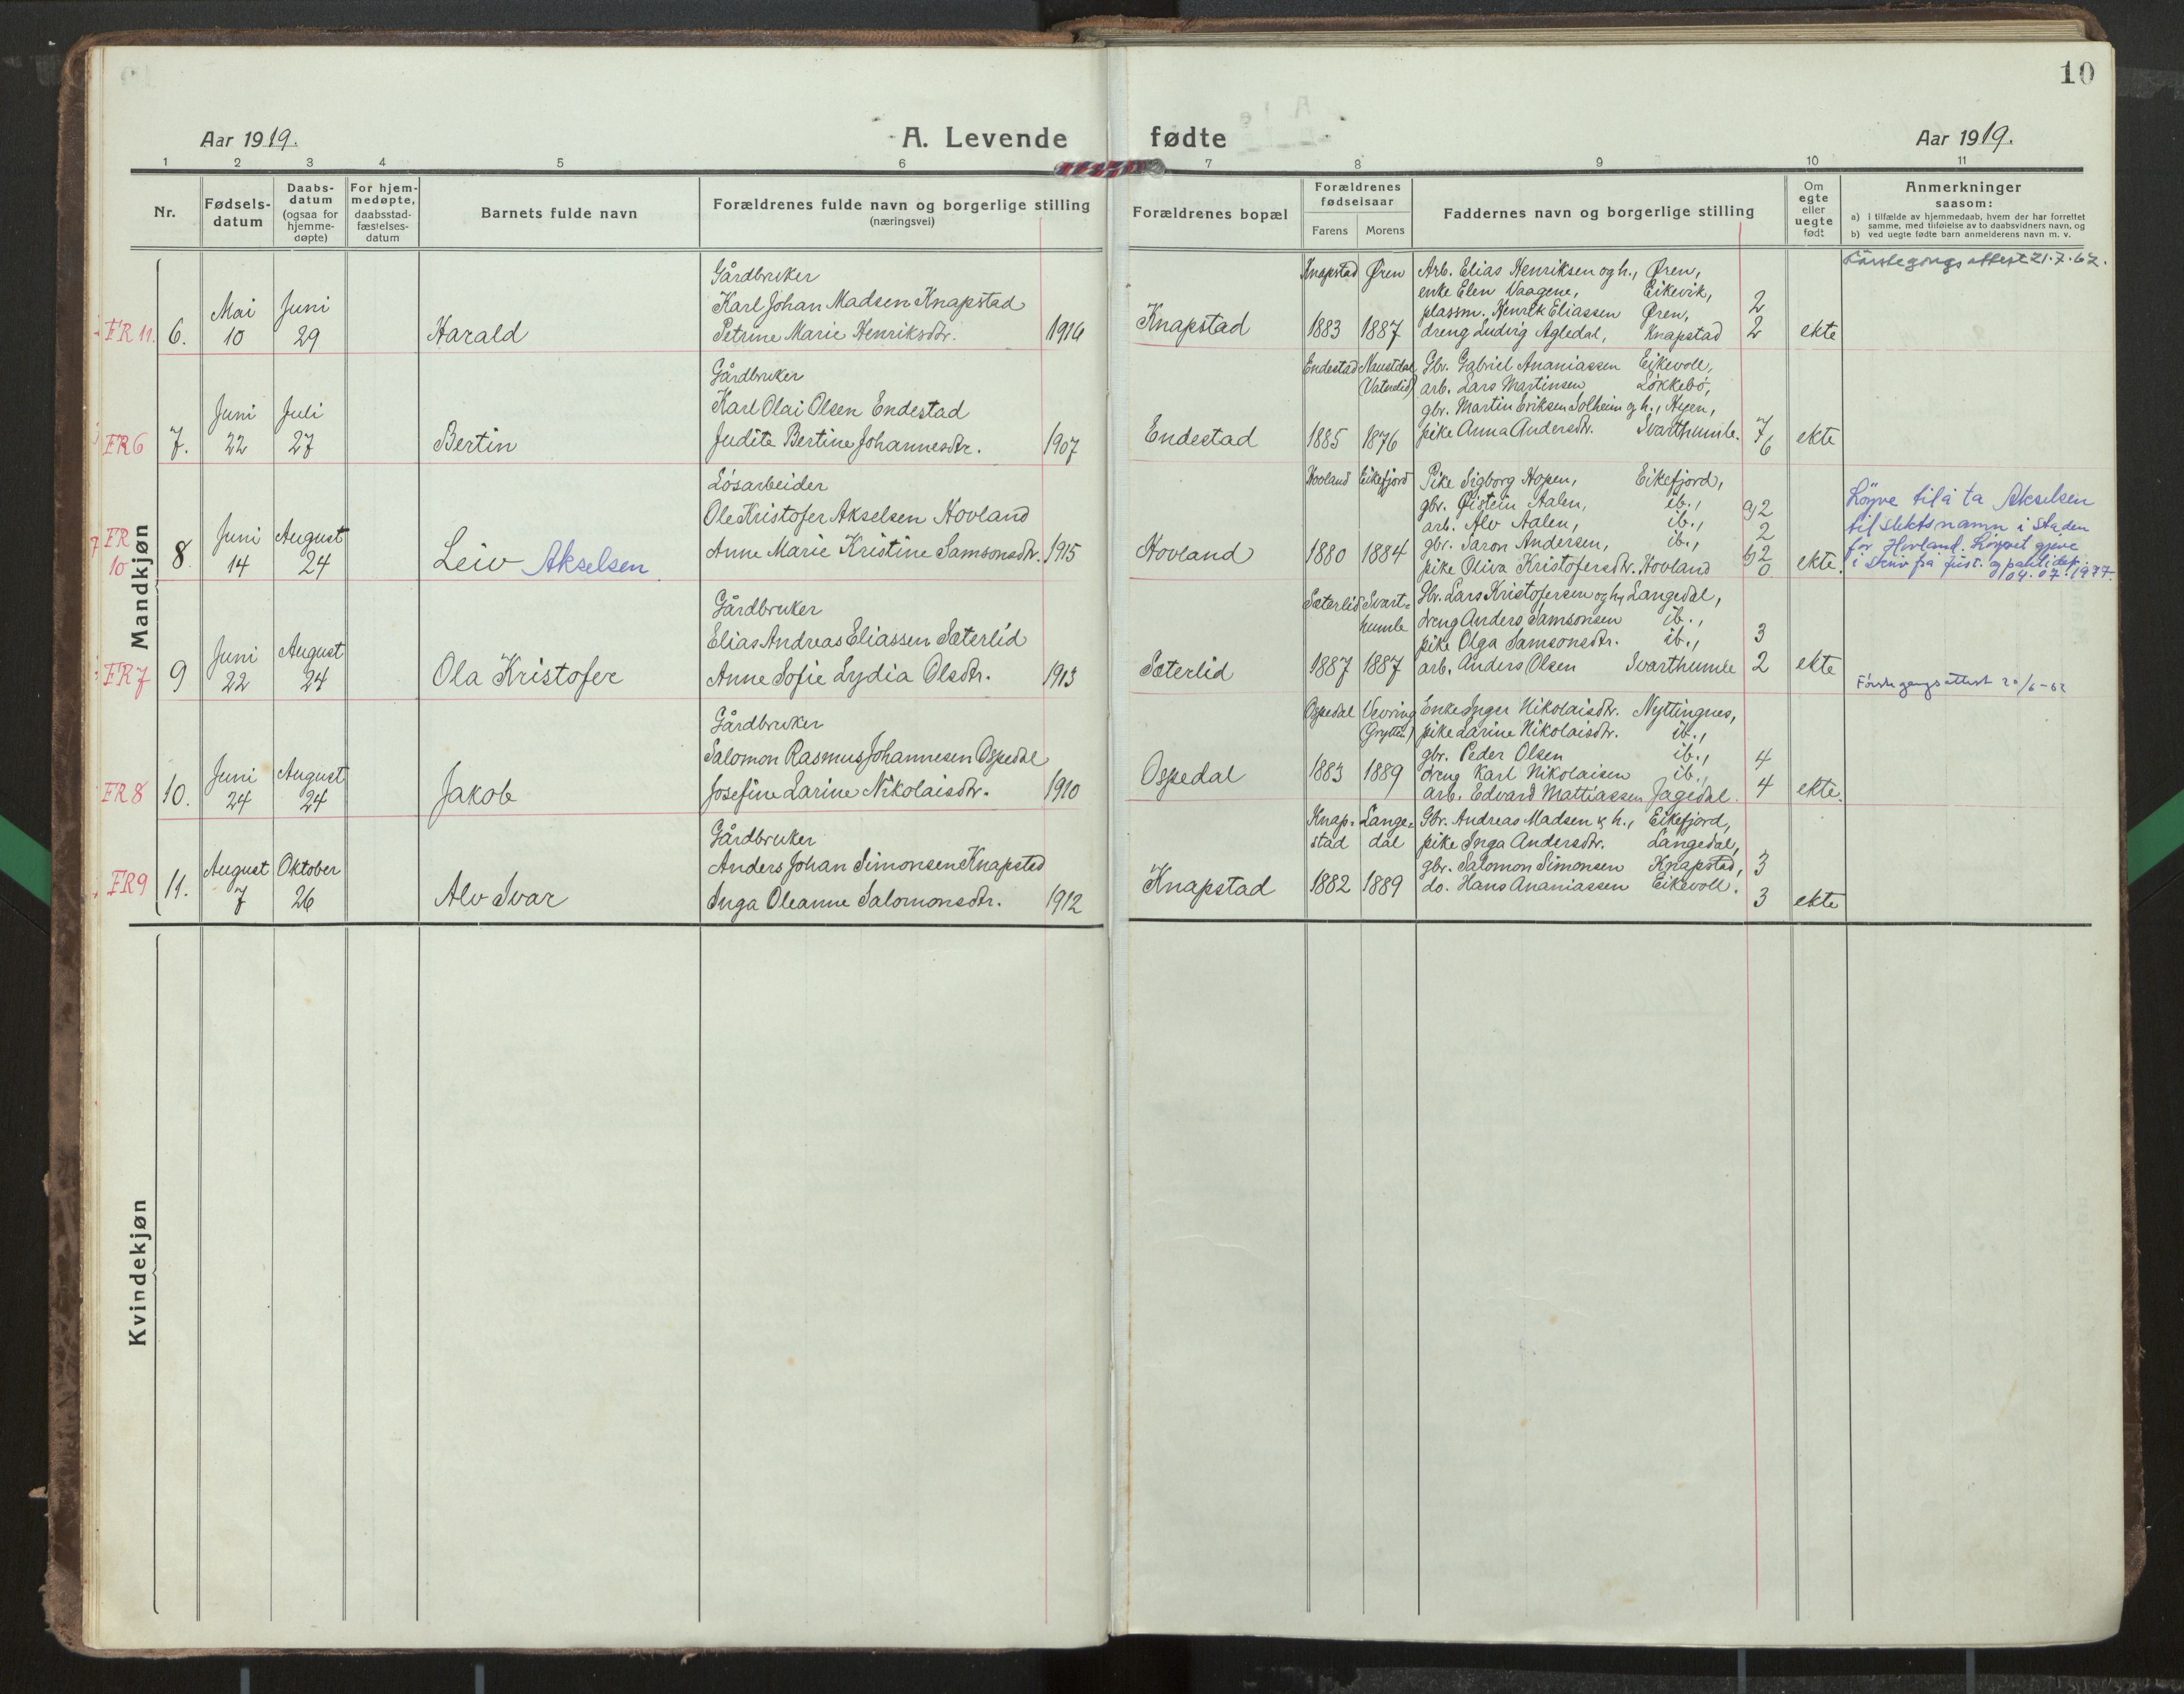 10
Aar 1919.
A. Levende fødte
Aar 1919.
1 2 3 4 5 6 7 8 9 10 11
Nr.
Fødsels-
datum
Daabs-
datum
(ogsaa for
hjemme-
døpte)
For hjem-
medøpte,
daabsstad-
fæstelses-
datum
Barnets fulde navn
Forældrenes fulde navn og borgerlige stilling
(næringsvei)
Forældrenes bopæl
Forældrenes
fødselsaar
Farens Morens
Faddernes navn og borgerlige stilling
Om
egte
eller
uegte
født
Anmerkninger
saasom:
a) i tilfælde av hjemmedaab, hvem der har forrettet
samme, med tilføielse av to daabsvidners navn, og
b) ved uegte fødte barn anmelderens navn m. v.
Mandkjøn
FR 11.
6.
Mai
10
Juni
29
Harald
Gårdbruker
Karl Johan Madsen Knapstad
Petrine Marie Henriksdtr. 1916
Knapstad
Knapstad Øren
1883 1887
Arb. Elias Henriksen og h., Øren,
enke Elen Vaagene, Eikevik,
plassm. Henrik Eliassen Øren, 2
dreng Ludvig Agledal, Knapstad 2
ekte
Førstegongs attest 21.7.62.
FR 6
7.
Juni
22
Juli
27
Bertin
Gårdbruker
Karl Olai Olsen Endestad
Judite Bertine Johannesdtr. 1907
Endestad
Endestad Naustdal
(Vatndid)
1885 1876
Gbr. Gabriel Ananiassen Eikevoll,
arb. Lars Martinsen Løkkebø,
gbr. Martin Eriksen Solheim og h., Hyen,
pike Anna Andersdtr. Svarthumle. 7
6
ekte
FR
10
8.
Juni
14
August
24
Leiv Akselsen
Løsarbeider
Ole Kristofer Akselsen Hovland
Anne Marie Kristine Samsonsdtr. 1915
Hovland
Hovland Eikefjord
1880 1884
Pike Sigborg Hopen, Eikefjord,
gbr. Øistein Aalen, ib.,
arb. Alv Aalen, ib., 2
gbr. Saron Andersen, ib.,
pike Oliva Kristofersdtr. Hovland
ekte.
Løyve til å ta Akselsen
til slektsnamn i staden
for Hovland. Løyvet gjeve
i skriv frå just. og politidep.
04.07.1977.
FR 7
9
Juni
22
August
24
Ola Kristofer
Gårdbruker
Elias Andreas Eliassen Sæterlid
Anne Sofie Lydia Olsdtr. 1913
Sæterlid
Sæterlid Svart-
humle
1887 1887
Gbr. Lars Kristofersen og h, Langedal,
dreng Anders Samsonsen ib.,
pike Olga Samsonsdtr. ib., 3
arb. Anders Olsen Svarthumle 2
ekte
Førstegangsattest 20/6-62
FR 8
10.
Juni
24
August
24
Jakob
Gårdbruker
Salomon Rasmus Johannesen Ospedal
Josefine Larine Nikolaisdtr. 1910
Ospedal
Ospedal Vevring
(Grytten)
1883 1889
Enke Inger Nikolaisdtr. Nyttingnes,
pike Larine Nikolaisdtr. ib.,
gbr. Peder Olsen ib., 4
dreng Karl Nikolaisen ib.,
arb. Edvard Mattiassen Fagedal. 4
ekte.
FR 9
11.
August
7
Oktober
26
Alv Ivar
Gårdbruker
Anders Johan Simonsen Knapstad
Inga Oleanne Salomonsdtr. 1912
Knapstad
Knap- Lange-
stad dal
1882 1889
Gbr. Andreas Madsen & h., Eikefjord,
pike Inga Andersdtr. Langedal,
gbr. Salomon Simonsen Knapstad, 3
do. Hans Ananiassen Eikevoll. 3
ekte
Kvindekjøn